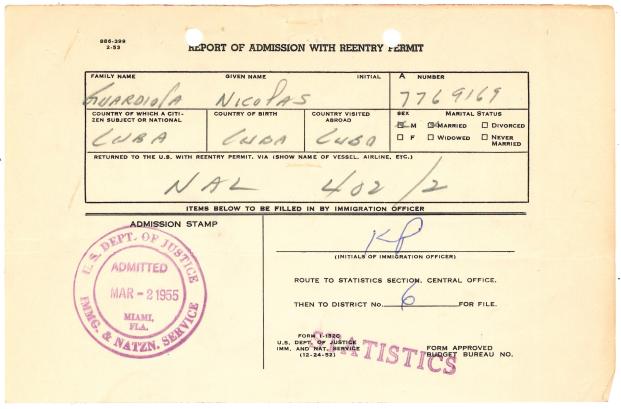 886-399
2-53
REPORT OF ADMISSION WITH REENTRY PERMIT
FAMILY NAME GIVEN NAME INITIAL A NUMBER
Guardiola Nicolas 7769169
COUNTRY OF WHICH A CITI-
ZEN SUBJECT OR NATIONAL
COUNTRY OF BIRTH
COUNTRY VISITED
ABROAD
SEX MARITAL STATUS
M MARRIED DIVORCED
F WIDOWED NEVER
MARRIED
CUBA CUBA CUBA
RETURNED TO THE U.S. WITH REENTRY PERMIT. VIA (SHOW NAME OF VESSEL, AIRLINE, ETC.)
NAL 402/2
ITEMS BELOW TO BE FILLED IN BY IMMIGRATION OFFICER
ADMISSION STAMP
U. S. DEPT. OF JUSTICE
ADMITTED
MAR - 2 1955
MIAMI,
FLA.
IMMG. & NATZN. SERVICE
KP
(INITIALS OF IMMIGRATION OFFICER)
ROUTE TO STATISTICS SECTION, CENTRAL OFFICE.
THEN TO DISTRICT No. 6 FOR FILE.
FORM I-132C
U. S. DEPT. OF JUSTICE
IMM. AND NAT. SERVICE
(12-24-52)
STATISTICS
FORM APPROVED
BUDGET BUREAU NO.